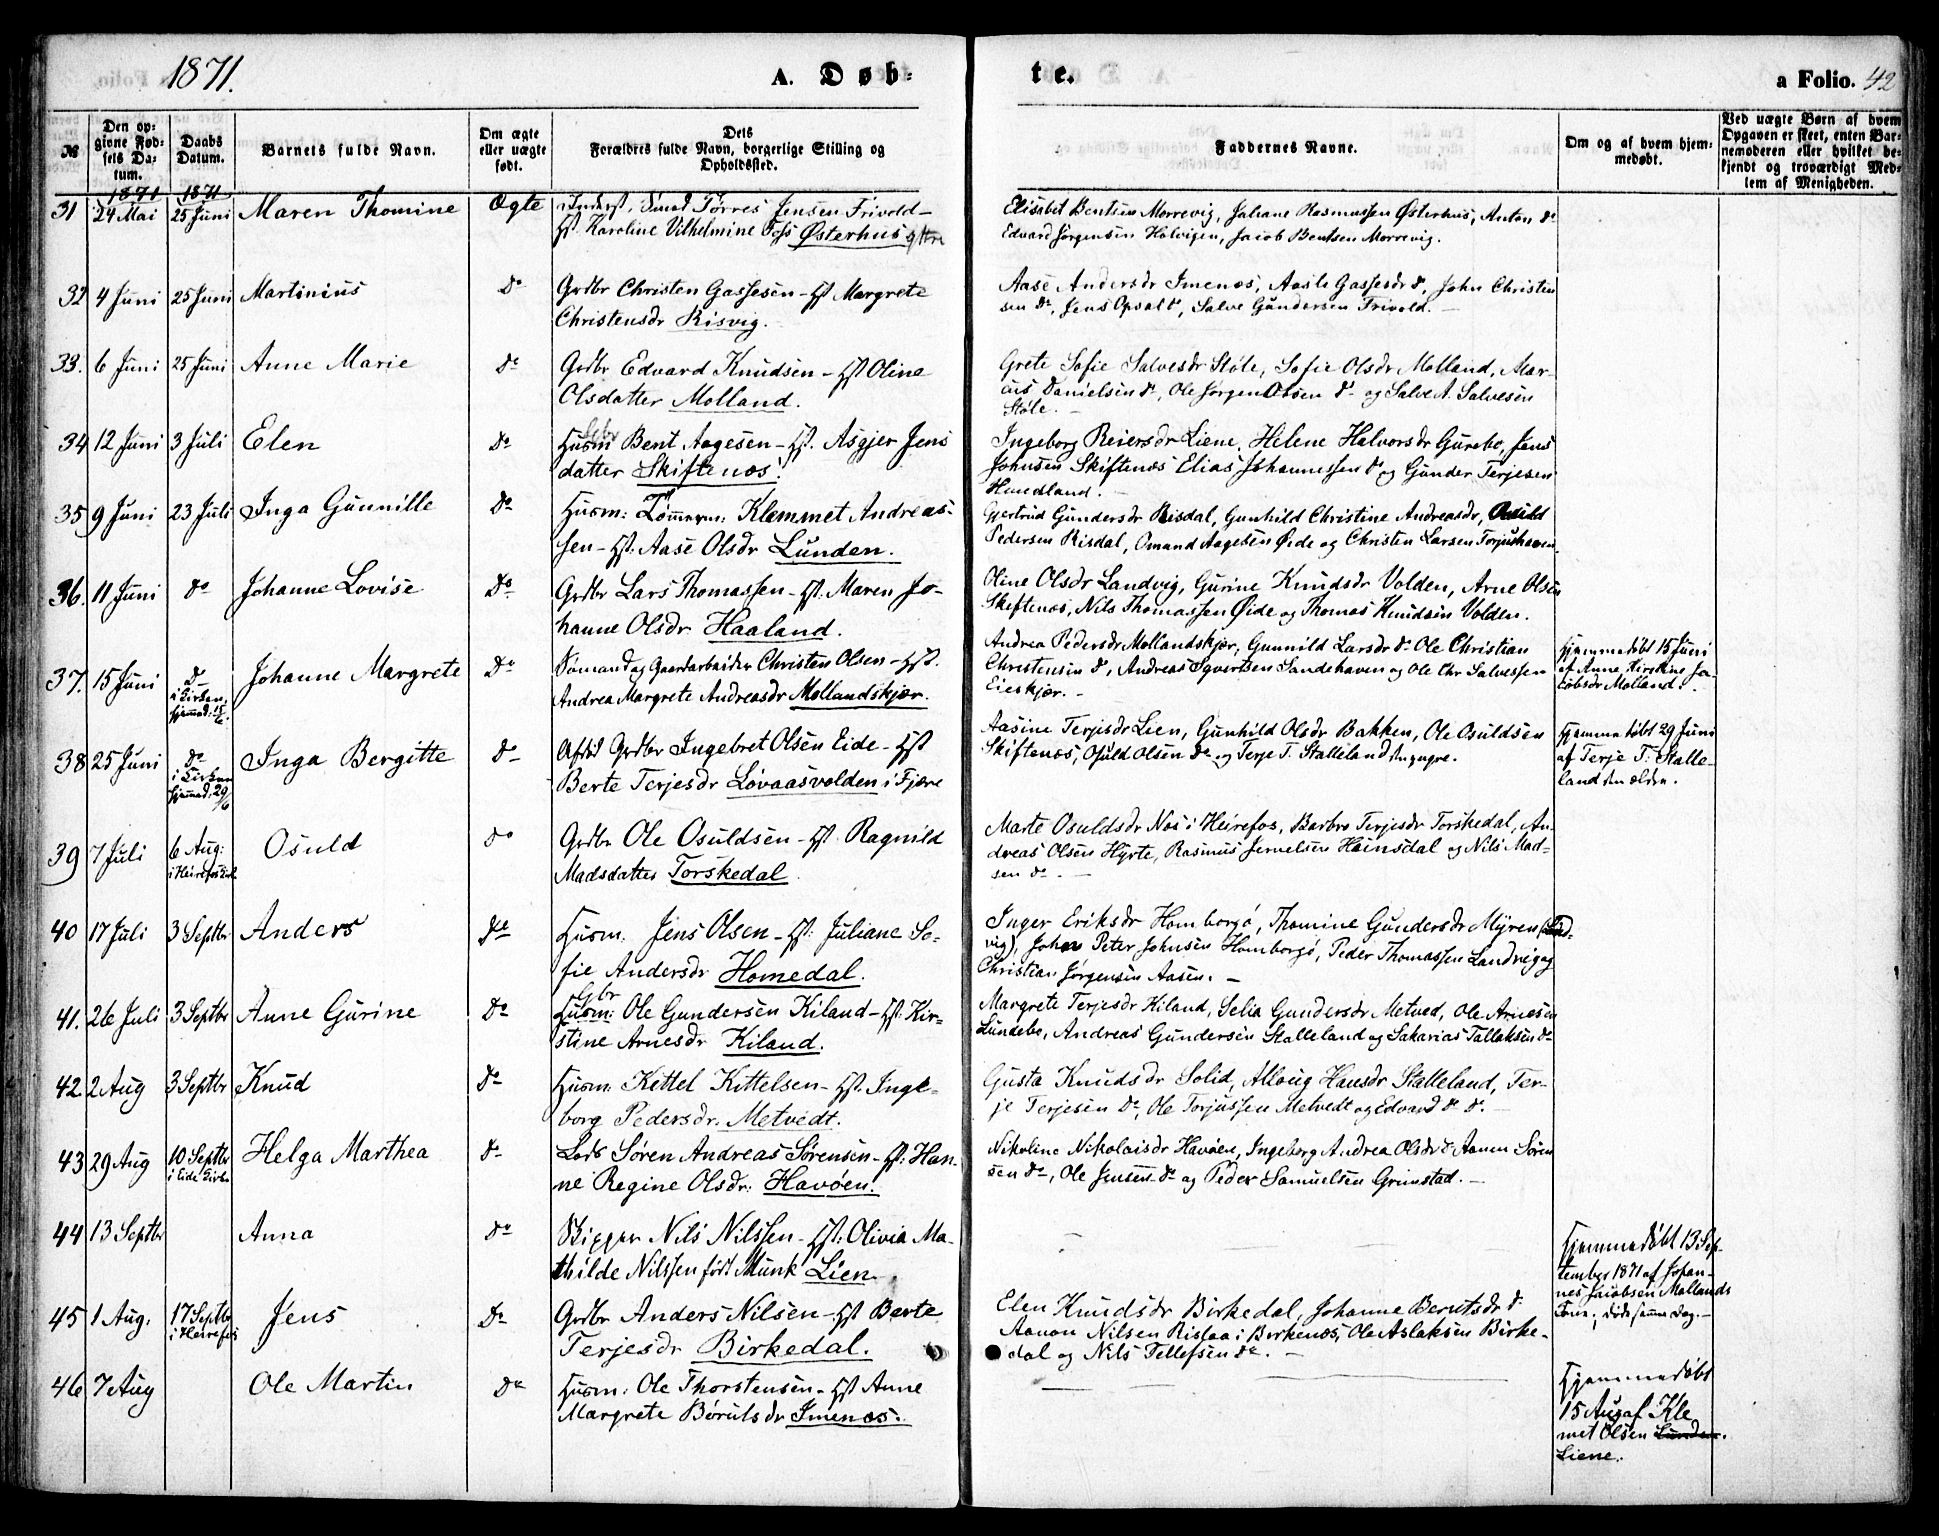 1871.
A. Døb-
te.
a Folio. 42
№
Den op-
givne Fød-
sels Da-
tum.
Daabs
Datum.
Barnets fulde Navn.
Om ægte
eller uægte
født.
Dets
Forældres fulde Navn, borgerlige Stilling og
Opholdssted.
Faddernes Navne.
Om og af hvem hjem-
medøbt.
Ved uægte Børn af hvem
Opgaven er skeet, enten Bar-
nemoderen eller hvilket be-
kjendt og troværdigt Med-
lem af Menigheden.
1871 1871
31 24 Mai 25 Juni Maren Thomine Ægte Inderst, Smed Tørres Jensen Frivold -
Hst. Karoline Vilhelmine Østerhus
Elisabet Bentsen Morrevig, Juliane Rasmussen Østerhus, Anton do
Edvard Jørgensen Holvigen, Jacob Bentsen Morrevig.
32 4 Juni 25 Juni Martinius Do Grdbr Christen Gassesen - Hst Margrete
Christensdr Risvig.
Aase Andersdr Imenæs, Aasle Gassesdr do, John Christen
sen do, Jens Opsal do, Salve Gundersen Frivold. -
33. 6 Juni 25 Juni Anne Marie Do Grdbr Edvard Knudsen - Hst Oline
Olsdatter Molland.
Grete Sofie Salvesdr Støle, Sofie Olsdr Molland, Mar-
cus Danielsen do, Ole Jørgen Olsen do og Salve A. Salvesen
Støle. -
34 12 Juni 3 Juli Elen Do Husm Bent Aagesen - Hst. Asgjer Jens
datter Skiftenæs.
Ingeborg Reiersdr Liene, Helene Halvorsdr Gurebo, Jens
Johnsen Skiftenæs Elias Johannessen do og Gunder Terjesen
Hundland. -
35 9 Juni 23 Juli Inga Gunnille Do Husm: Tømrerm: Klemmet Andreas-
sen - Hst. Aase Olsdr Lunden.
Gjertrud Gundersdr Risdal, Gunhild Christine Andreasdr, Osuld
Pedersen Risdal, Omund Aagesen Øide og Christen Larsen Torjushaven.
36. 11 Juni do Johanne Lovise Do Grdbr Lars Thomassen - Hst: Maren Jo-
hanne Olsdr Haaland.
Oline Olsdr Landvig, Gurine Knudsdr Volden, Arne Olsen
Skiftenæs, Nils Thomassen Øide og Thomas Knudsen Volden.
37. 15 Juni do
i Kirken,
hjemmed: 15/6. Johanne Margrete Do Sømand og Gaardarbeider Christen Olsen - Hst.
Andrea Margrete Andreasdr Mollandskjær.
Andrea Pedersdr Mollandskjær, Gunnild Larsdr do Ole Christian
Christensen do, Andreas Sjvertsen Sandehaven og Ole Chr Salvessen
Eieskjær. -
Hjemmedøbt 15 Juni
af Anne Kirstine Ja-
kobsdr Molland.
38 25 Juni do
i Kirken
hjemmed: 29/6 Inga Bergitte Do Afdd Grdbr Ingebret Olsen Eide - Hst
Berte Terjesdr Løvaasvolden i Fjære
Aasine Terjesdr Lien, Gunhild Olsdr Bakken, Ole Osuldsen
Skiftenæs, Osuld Olsen do og Terje T. Stalleland den yngre.
Hjemmedøbt 29 Juni
af Terje T. Stalle-
land den ældre.
39 7 Juli 6 Aug:
i Heirefos Osuld Do Grdbr Ole Osuldsen - Hst. Ragnild
Madsdatter Torskedal.
Marte Osuldsdr Næs i Heirefos, Barbro Terjesdr Torskedal, An-
dreas Olsen Hyrte, Rasmus Jernelsen Heinsdal og Nils Mad-
sen do. -
40 17 Juli 3 Septbr Anders Do Husm: Jens Olsen - Hst: Juliane So-
fie Andersdr Homedal.
Inger Eriksdr Homborgø, Thomine Gundersdr Myren (Land-
vig), John Peter Johnsen Homborgø, Peder Thomassen Landvig og
Christian Jørgensen Aasen. -
41. 26 Juli 3 Septbr Anne Gurine Do Gbr
Husm: Ole Gundersen Kiland - Hst: Kir-
stine Arnesdr Kiland.
Margrete Terjesdr Kiland, Selia Gundersdr Metved, Ole Arnesen
Lundebo, Andreas Gundersen Stalleland og Sakarias Tallaksen do
42. 2 Aug 3 Septbr Knud Do Husm: Kittel Kittelsen - Hst. Inge-
borg Pedersdr. Metvedt.
Gusta Knudsdr Solid, Alloug Hansdr Stalleland, Ter-
je Terjesen do, Ole Torjussen Metvedt og Edvard do do. -
43 29 Aug 10 Septbr
i Eide Kirke Helga Marthea Do Lods Søren Andreas Sørensen - Hst: Han-
ne Regine Olsdr: Havøen.
Nikoline Nikolaisdr Havøen, Ingeborg Andrea Olsdr do Aanen Søren
sen do, Ole Jensen do og Peder Samuelsen Grimstad. -
44 13 Septbr Anna Do Skipper Nils Nilssen - Hst: Olivia Ma-
thilde Nilssen født Munk Lien.
Hjemmedøbt 13 Sep-
tember 1871 af Johan-
nes Jacobsen Mollands
Kone; døde samme Dag. -
45 1 Aug. 17 Septbr
i Heirefos Jens Do Grdbr Anders Nilsen - Hst Berte
Terjesdr Birkedal.
Elen Knudsdr Birkedal, Johanne Berntsdr do
Aanon Nilsen Rislaa i Birkenæs, Ole Aslaksen Birke-
dal og Nils Tellefsen do. -
46 7 Aug Ole Martin Do Husm: Ole Thorstensen - Hst Anne
Margrete Børulsdr Imenæs.
Hjemmedøbt
15 Aug af Kle
met Olsen Lunden.
Liene.